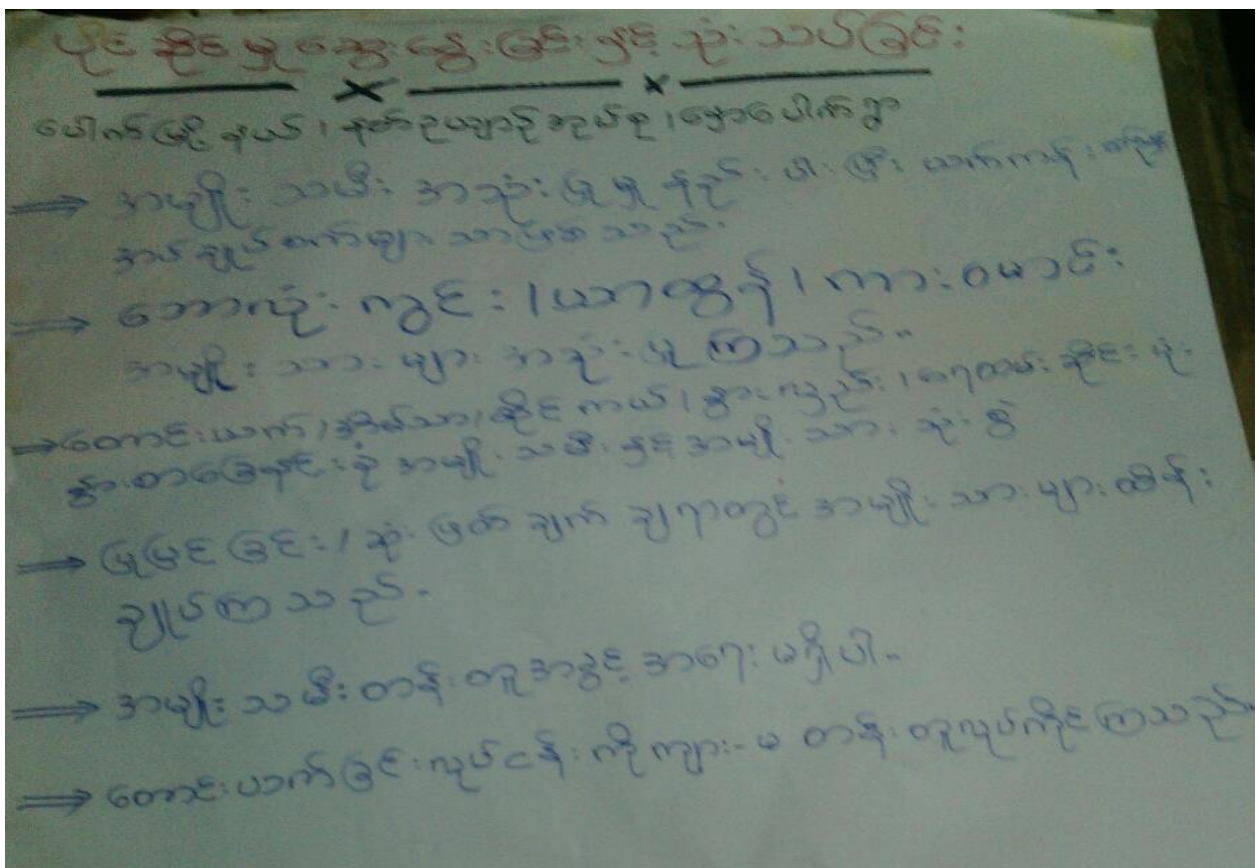 ပိုင်ဆိုင်မှု ဆွေးနွေးခြင်းနှင့် သုံးသပ်ခြင်း
ပေါက်မြို့နယ်၊ နတ်ဥယျာဉ်အုပ်စု၊ ရွာ
⇒ အမျိုးသမီး အသုံးပြုမှုနည်းပါးပြီး ယက်ကန်း
အပ်ချုပ်စက်များသာဖြစ်သည်။
⇒ ဘောလုံးကွင်း၊ ယာထွန်၊ ကားမောင်း
အမျိုးသားများ အသုံးပြုကြသည်။
⇒ တောင်းယက်၊ အိမ်သာ၊ ဆိုင်ကယ်၊ နွားလှည်း၊
နှင့်အမျိုးသား သုံးစွဲ
⇒ ပြုပြင်ခြင်း၊ ဆုံးဖြတ်ချက်ချရာတွင် အမျိုးသားများထိန်း
ချုပ်ကြသည်။
⇒ အမျိုးသမီးတန်းတူအခွင့်အရေးမရှိပါ။
⇒ တောင်းယက်ခြင်းလုပ်ငန်းကိုကျား-မ တန်းတူလုပ်ကိုင်ကြသည်။